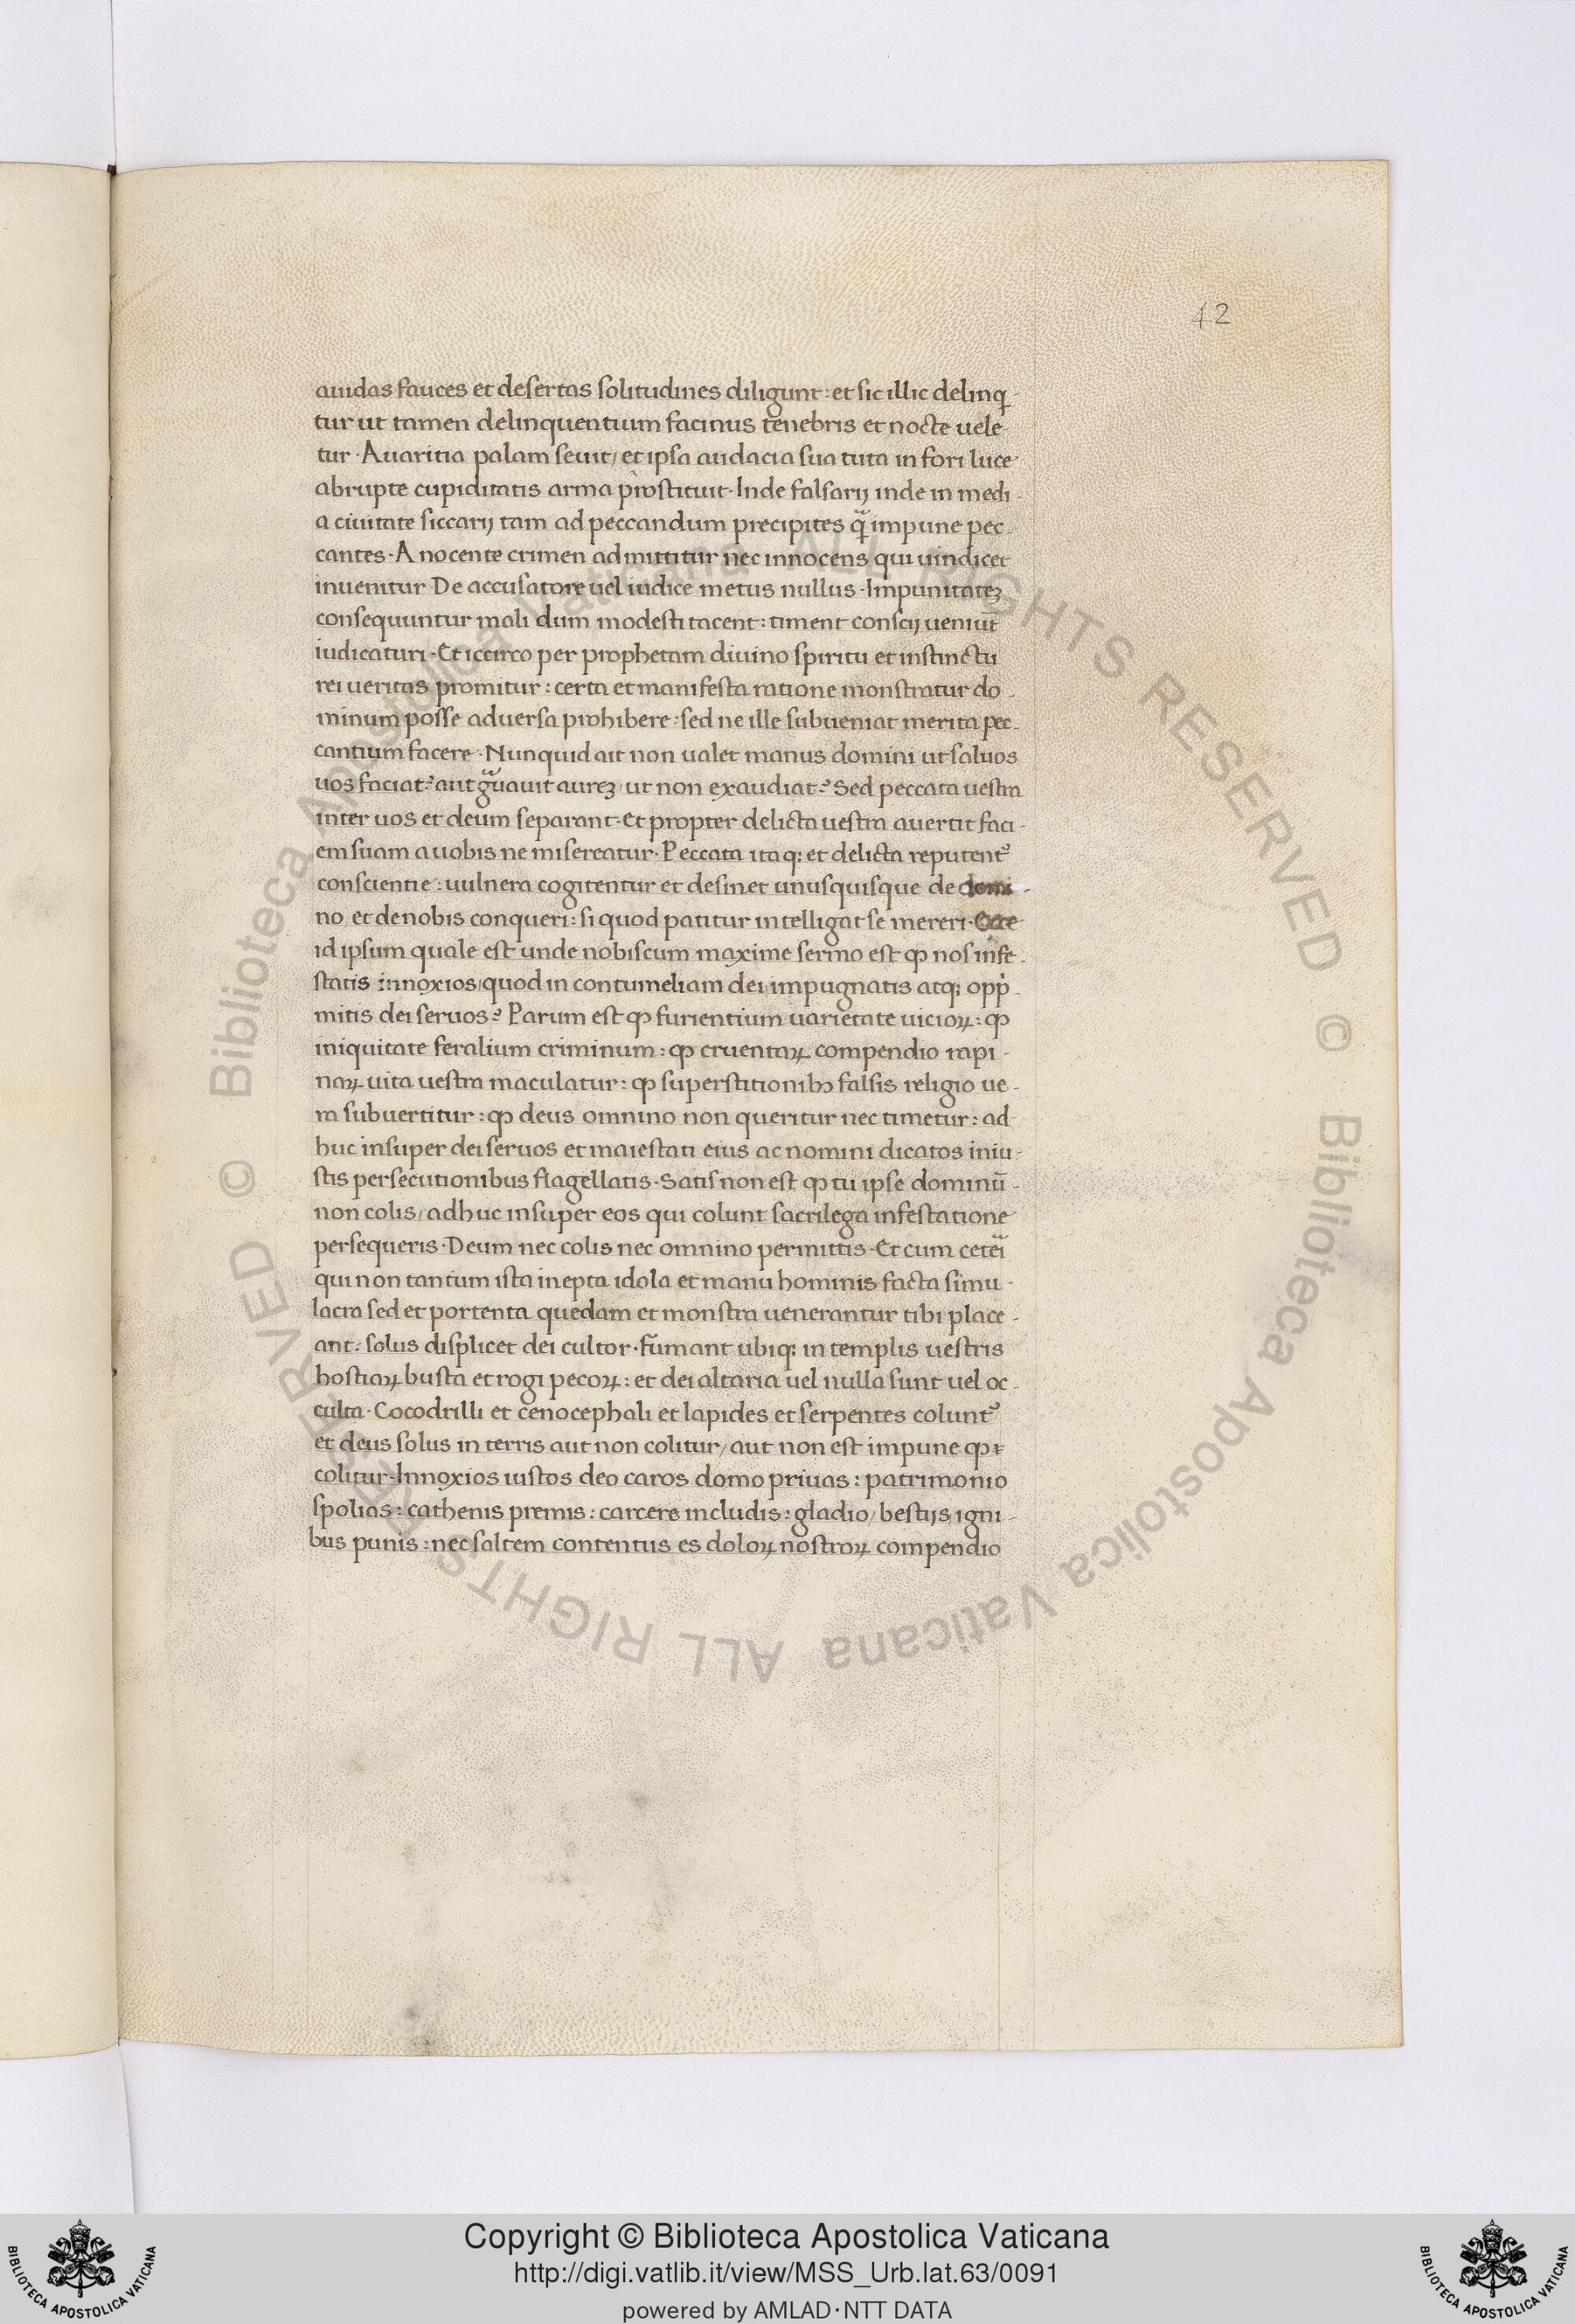 42
auidas fauces et desertas solitudines diligunt : et sic illic delinq̅-
tur ut tamen delinquentium facinus tenebris et nocte uele
tur · Auaritia palam seuit / et ipsa audacia sua tuta in fori luce
abrupte cupiditatis arma prostituit · Inde falsarij inde in medi-
a ciuitate siccarij tam ad peccandum precipites q̃ impune pec-
cantes · A nocente crimen admittitur nec innocens qui uindicet
inuenitur · De accusatore uel iudice metus nullus · Impunitateꝫ
consequuntur mali dum modesti tacent : timent conscij ueniūt
iudicaturi · Et iccirco per prophetam diuino spiritu et instinctu
rei ueritas promitur : certa et manifesta ratione monstratur do-
minum posse aduersa prohibere : sed ne ille subueniat merita pec-
cantium facere · Nunquid ait non ualet manus domini ut saluos
uos faciat ? aut gͣuauit aureꝫ / ut non exaudiat ? Sed peccata uestra
inter uos et deum separant · Et propter delicta uestra auertit faci-
em suam a uobis ne misereatur · Peccata itaq; et delicta reputent᷑
conscientie : uulnera cogitentur et desinet unusquisque de domi-
no et de nobis conqueri : si quod patitur intelligat se mereri · Ecce
id ipsum quale est unde nobiscum maxime sermo est ꝙ nos infe-
statis innoxios / quod in contumeliam dei impugnatis atq; opp̍-
mitis dei seruos ? Parum est ꝙ furientium uarietate uicioꝝ : ꝙ
iniquitate feralium criminum : ꝙ cruentaꝝ compendio rapi-
naꝝ uita uestra maculatur : ꝙ superstitionibꝫ falsis religio ue-
ra subuertitur : ꝙ deus omnino non queritur nec timetur : ad
huc insuper dei seruos et maiestati eius ac nomini dicatos iniu-
stis persecutionibus flagellatis · Satis non est ꝙ tu ipse dominū-
non colis / adhuc insuper eos qui colunt sacrilega infestatione
persequeris · Deum nec colis nec omnino permittis · Et cum ceteͣi
qui non tantum ista inepta idola et manu hominis facta simu-
lacra sed et portenta quedam et monstra uenerantur tibi place-
ant : solus displicet dei cultor · Fumant ubiq; in templis uestris
hostiaꝝ busta et rogi pecoꝝ : et dei altaria uel nulla sunt uel oc-
culta · Cocodrilli et cenocephali et lapides et serpentes colunt᷑
et deus solus in terris aut non colitur / aut non est impune ꝙ
colitur · Innoxios iustos deo caros domo priuas : patrimonio
spolias : cathenis premis : carcere includis : gladio / bestijs / igni-
bus punis : nec saltem contentus es doloꝝ nostroꝝ compendio
© Biblioteca Apostolica Vaticana ALL RIGHTS RESERVED © Biblioteca Apostolica Vaticana ALL RIGHTS RESERVED
BIBLIOTECA APOSTOLICA VATICANA
Copyright © Biblioteca Apostolica Vaticana
http://digi.vatlib.it/view/MSS_Urb.lat.63/0091
powered by AMLAD·NTT DATA
BIBLIOTECA APOSTOLICA VATICANA